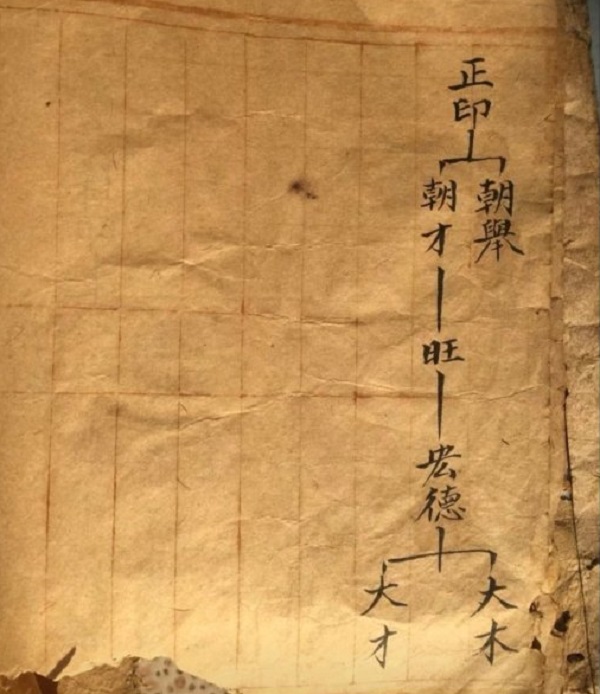 正印
朝舉
朝才
旺
宏德
大木
大才